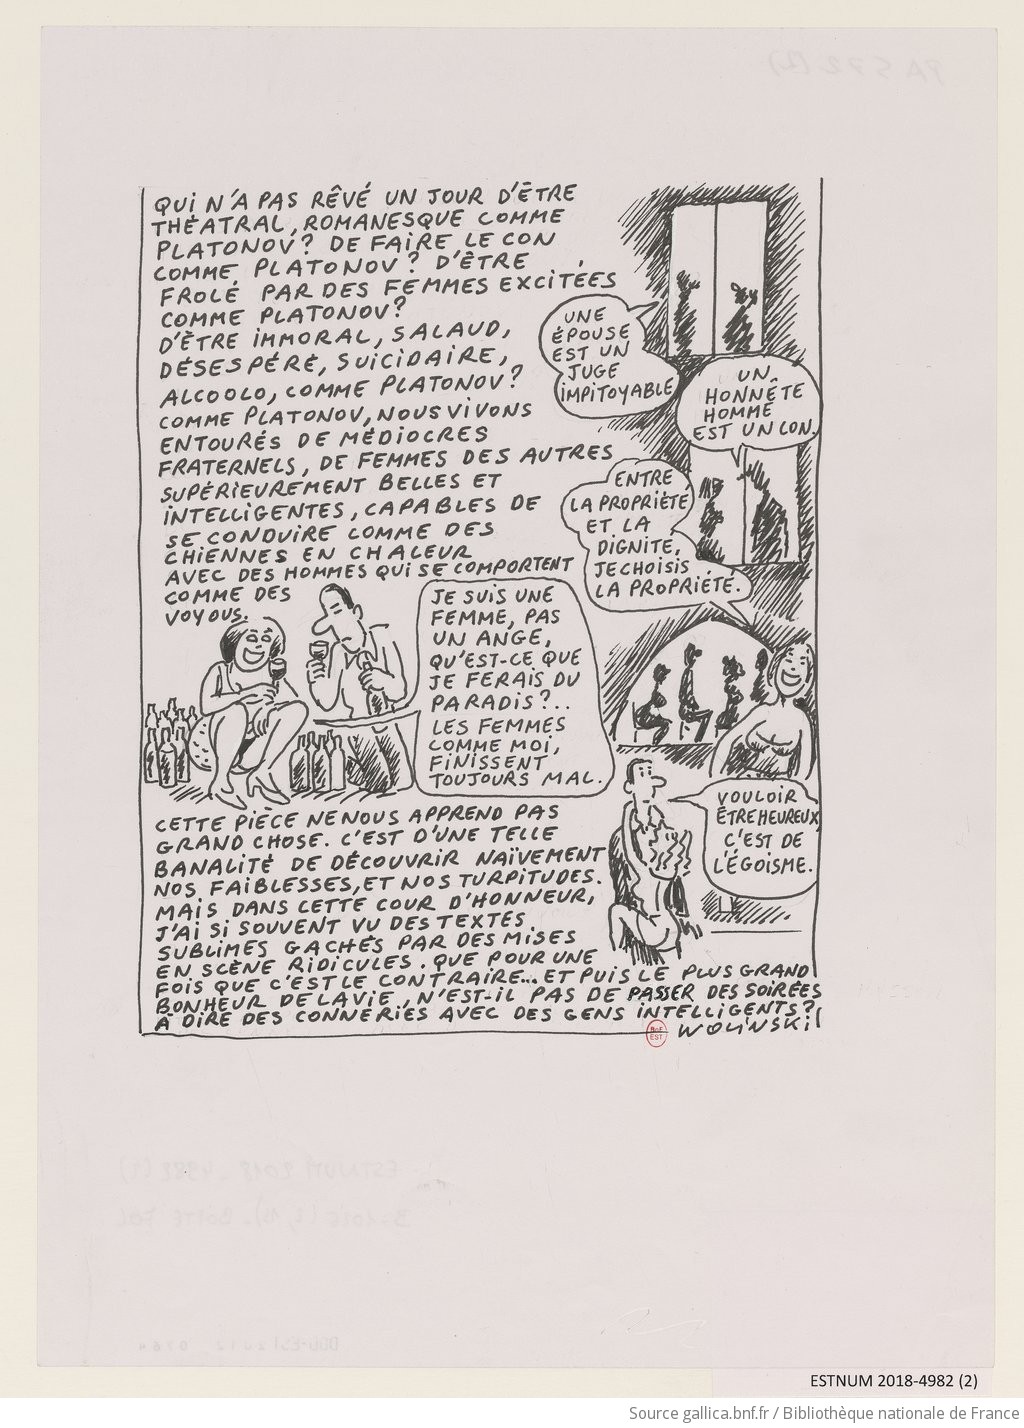 QUI N'A PAS RÊVÉ UN JOUR D'ÊTRE
THÉATRAL, ROMANESQUE COMME
PLATONOV? DE FAIRE LE CON
COMME PLATONOV? D'ÊTRE
FROLÉ PAR DES FEMMES EXCITÉES
COMME PLATONOV?
D'ÊTRE IMMORAL, SALAUD,
DÉSESPÉRÉ, SUICIDAIRE,
ALCOOLO, COMME PLATONOV?
COMME PLATONOV, NOUS VIVONS
ENTOURÉS DE MÉDIOCRES
FRATERNELS, DE FEMMES DES AUTRES
SUPÉRIEUREMENT BELLES ET
INTELLIGENTES, CAPABLES DE
SE CONDUIRE COMME DES
CHIENNES EN CHALEUR
AVEC DES HOMMES QUI SE COMPORTENT
COMME DES
VOYOUS.
UNE
ÉPOUSE
EST UN
JUGE
IMPITOYABLE
UN
HONNÊTE
HOMME
EST UN CON.
ENTRE
LA PROPRIÉTÉ
ET LA
DIGNITÉ,
JE CHOISIS
LA PROPRIÉTÉ.
JE SUIS UNE
FEMME, PAS
UN ANGE,
QU'EST-CE QUE
JE FERAIS DU
PARADIS?..
LES FEMMES
COMME MOI,
FINISSENT
TOUJOURS MAL.
VOULOIR
ÊTRE HEUREUX,
C'EST DE
L'ÉGOÏSME.
CETTE PIÈCE NE NOUS APPREND PAS
GRAND CHOSE. C'EST D'UNE TELLE
BANALITÉ DE DÉCOUVRIR NAÏVEMENT
NOS FAIBLESSES, ET NOS TURPITUDES.
MAIS DANS CETTE COUR D'HONNEUR,
J'AI SI SOUVENT VU DES TEXTES
SUBLIMES GACHÉS PAR DES MISES
EN SCÈNE RIDICULES. QUE POUR UNE
FOIS QUE C'EST LE CONTRAIRE... ET PUIS LE PLUS GRAND
BONHEUR DE LA VIE, N'EST-IL PAS DE PASSER DES SOIRÉES
À DIRE DES CONNERIES AVEC DES GENS INTELLIGENTS?
WOLINSKI
BnF
EST
ESTNUM 2018-4982 (2)
Source gallica.bnf.fr / Bibliothèque nationale de France